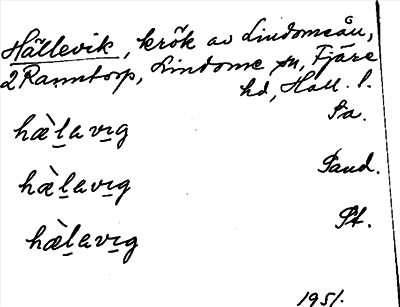 Hällevik, krök av Lindomeån,
2 Ranntorp, Lindome sn, Fjäre
hd, Hall. l.
Pa.
hæ̀l̠avi̠g
Pand.
hæ̀l̠avi̠g
Pt.
hæ̀l̠avi̠g
1951.